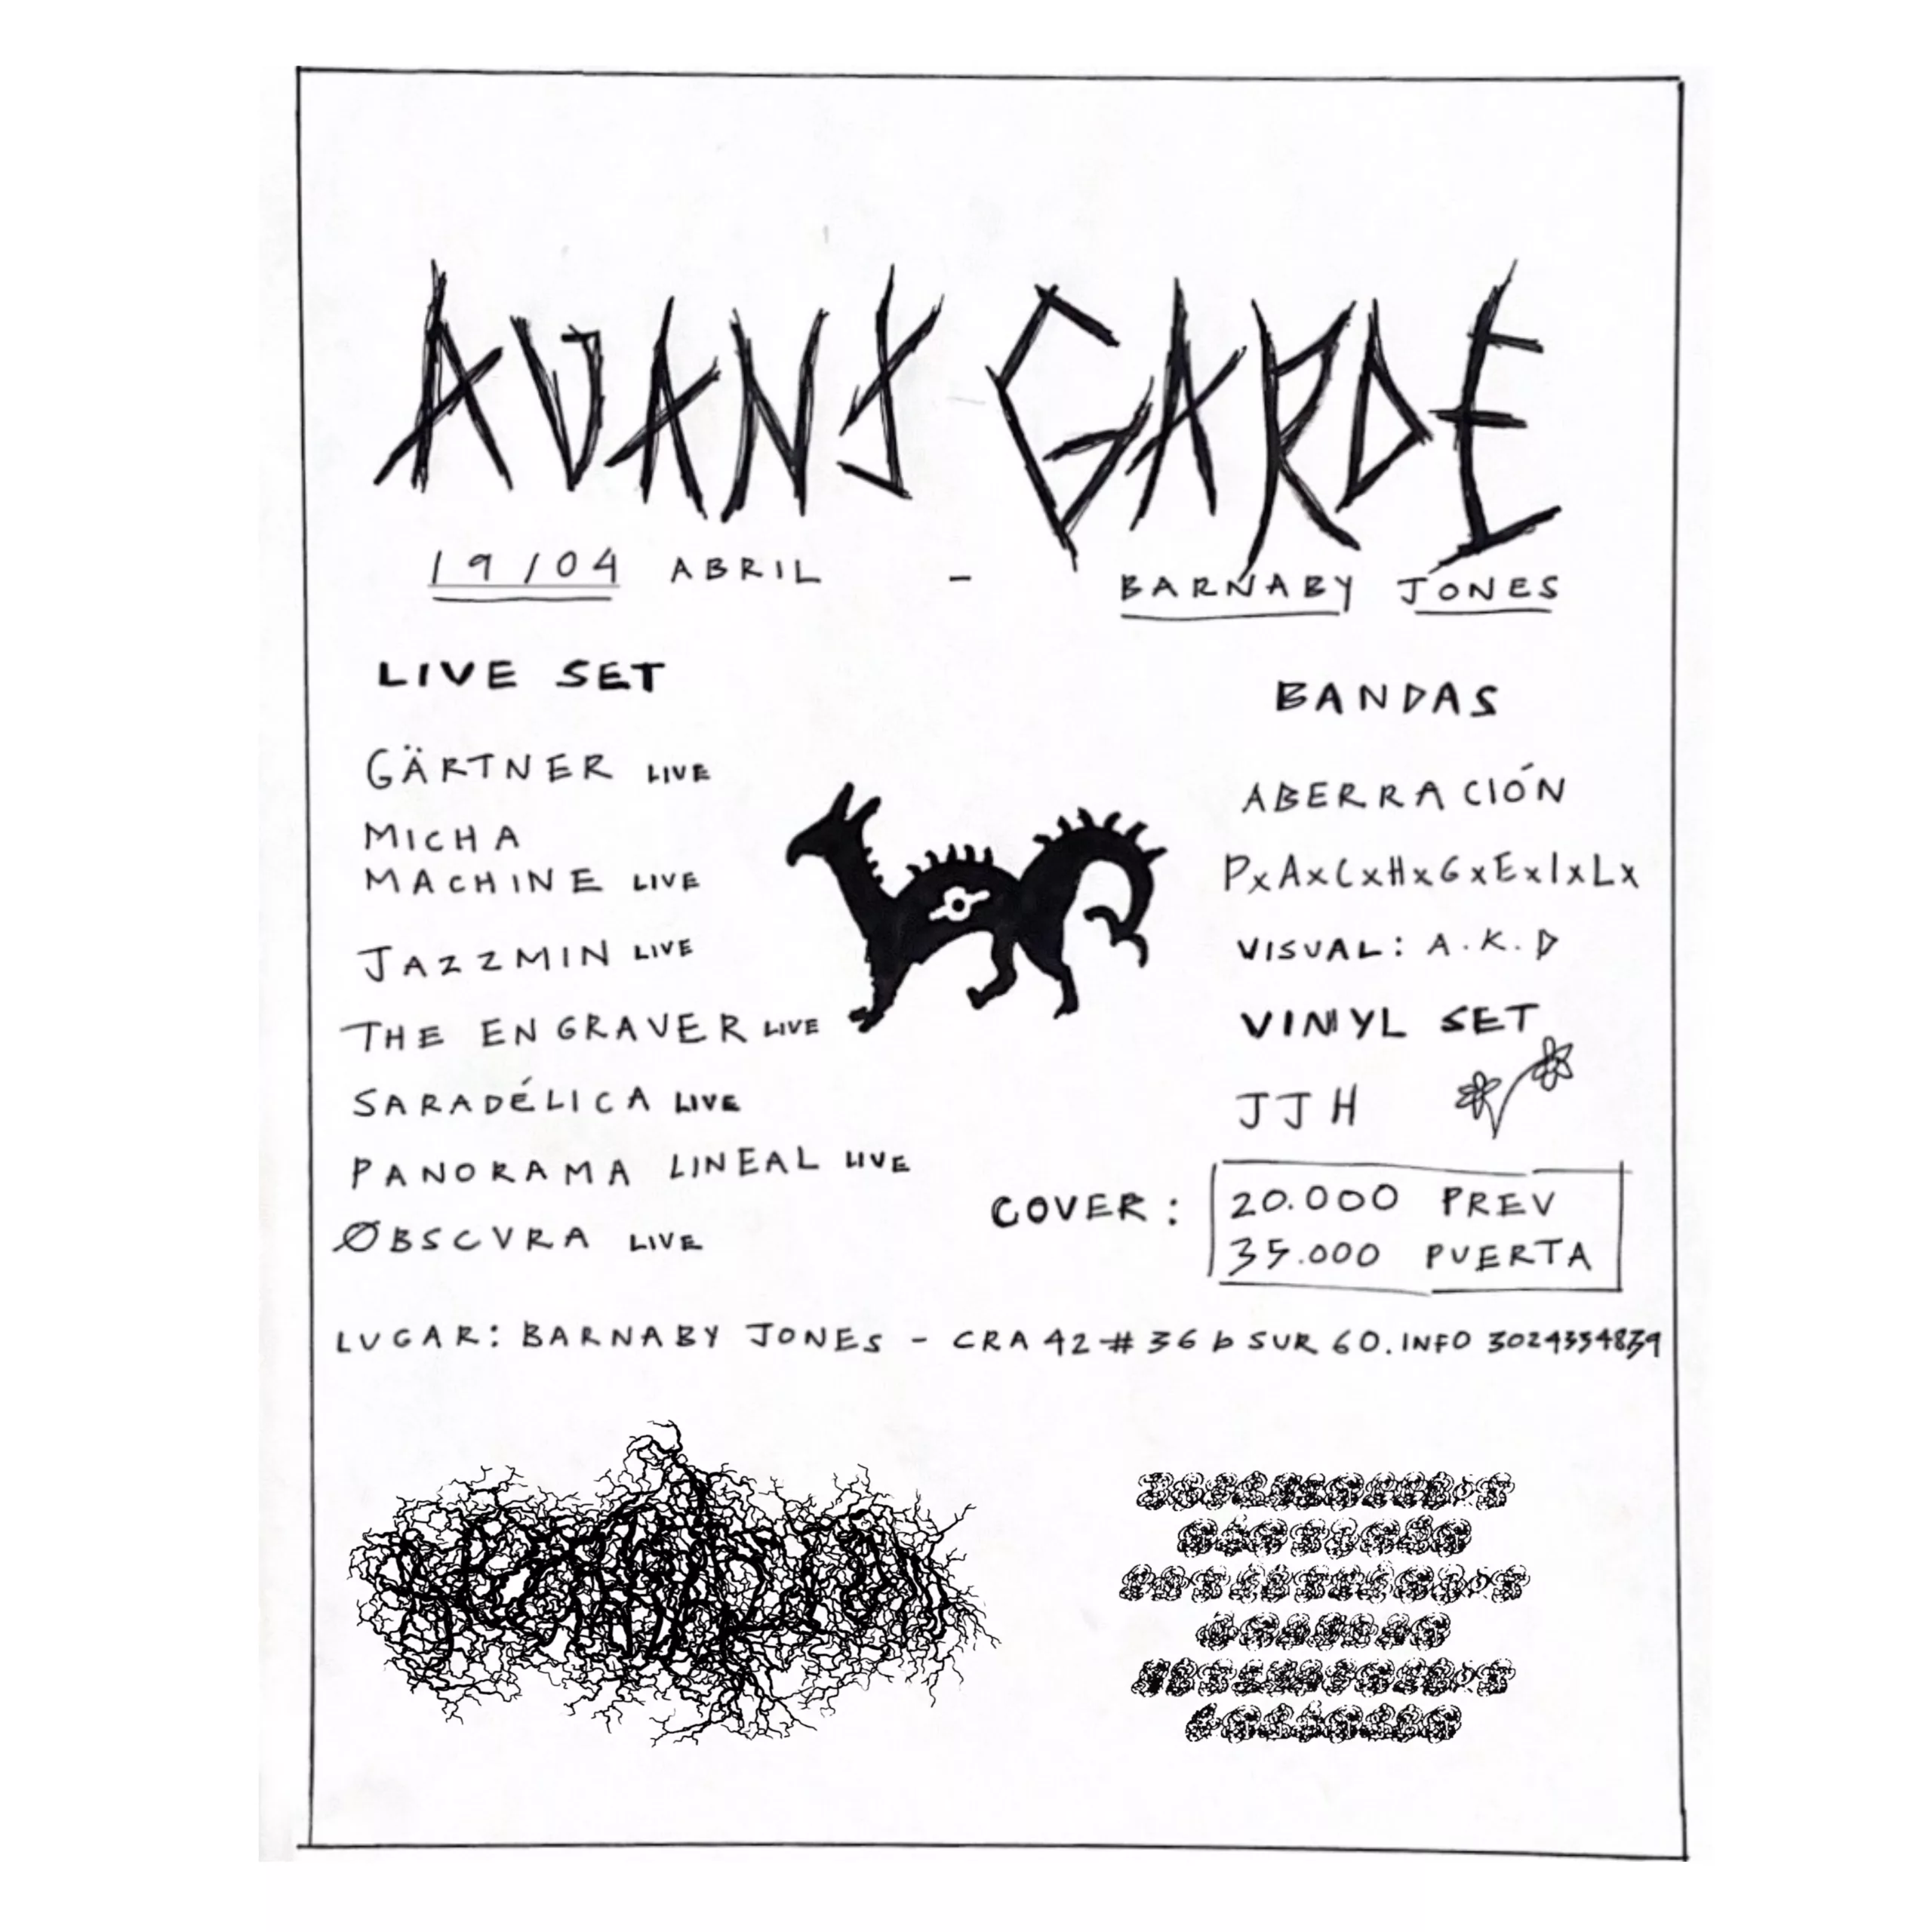 AVANT GARDE
19/04 ABRIL - BARNABY JONES
LIVE SET
GÄRTNER LIVE
MICHA
MACHINE LIVE
JAZZMIN LIVE
THE ENGRAVER LIVE
SARADÉLICA LIVE
PANORAMA LINEAL LIVE
ØBSCVRA LIVE
BANDAS
ABERRACIÓN
PxAxCxHxGxExIxLx
VISUAL: A.K.D
VINYL SET
JJH
COVER:
20.000 PREV
35.000 PUERTA
LUGAR: BARNABY JONES - CRA 42 # 36 b SUR 60. INFO